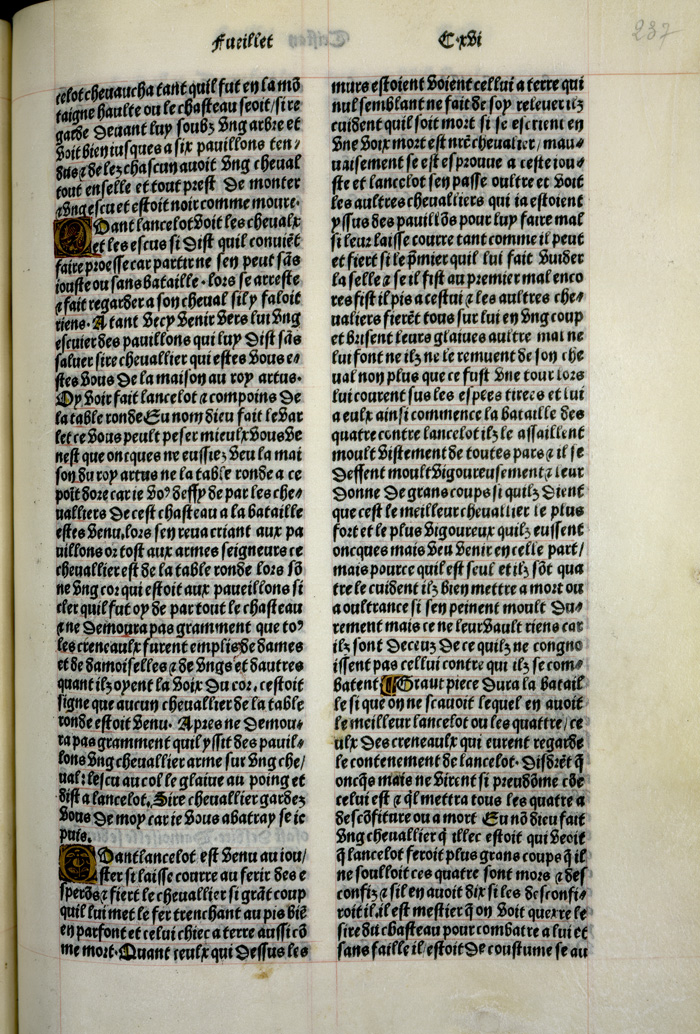 Fueillet
C.xvi
237
celot cheuaucha tant quil fut en la mō
taigne haulte ou le chasteau seoit/ si re
garde deuant luy soubz vng arbre et
voit bien iusques a six pauillons ten/
dus ⁊ delez chascun auoit vng cheual
tout enselle et tout prest de monter
⁊ vng escu et estoit noir comme moure.
Quant lancelot voit les cheuaulx
et les escus si dist quil conuiēt
faire proesse car partir ne sen peut sās
iouste ou sans bataille. lors se arreste
⁊ fait regarder a son cheual sil y faloit
riens. Atant vecy venir vers lui vng
escuier des pauillons qui luy dist sās
saluer sire cheuallier qui estes vous e/
stes vous de la maison au roy artus.
Oy voir fait lancelot ⁊ compoins de
la table ronde Eu nom dieu fait le var
let ce vous peult peser mieulx vous ve
nest que oncques ne eussiez veu la mai
son du roy artus ne la table ronde a ce
poīt dore car ie voꝰ deffy de par les che/
ualliers de cest chasteau a la bataille
estes venu. lors sen reua criant aux pa
uillons or tost aux armes seigneurs ce
cheuallier est de la table ronde lors sō
ne vng cor qui estoit aux paueillons si
cler quil fut oy de par tout le chasteau
⁊ ne demoura pas gramment que toꝰ
les creneaulx furent emplis de dames
et de damoiselles ⁊ de vngs et dautres
quant ilz oyent la voix du cor. cestoit
signe que aucun cheuallier de la table
ronde estoit venu. Apres ne demou/
ra pas gramment quil yssit des pauil/
lons vng cheuallier arme sur vng che/
ual: lescu au col le glaiue au poing et
dist a lancelot. Sire cheuallier gardez
vous de moy car ie vous abatray se ie
puis.
Quant lancelot est venu au iou/
ster si laisse courre au ferir des e
sperōs ⁊ fiert le cheuallier si grāt coup
quil lui met le fer trenchant au pis biē
en parfont et celui chiec a terre aussi cō
me mort. Quant ceulx qui dessus les
murs estoient voient cellui a terre qui
nul semblant ne fait de soy releuer ilz
cuident quil soit mort si se escrient en
vne voix mort est nr̄e cheualier/ mau/
uaisement se est esprouue a ceste iou/
ste et lancelot sen passe oultre et voit
les aultres cheualliers qui ia estoient
yssus des pauillōs pour luy faire mal
si leur laisse courre tant comme il peut
et fiert si le p̄mier quil lui fait vuider
la selle ⁊ se il fist au premier mal enco
res fist il pis a cestui ⁊ les aultres che/
ualiers fierēt tous sur lui en vng coup
et brisent leurs glaiues aultre mal ne
lui font ne ilz ne le remuent de son che
ual non plus que ce fust vne tour lors
lui courent sus les espees tirees et lui
a eulx ainsi commence la bataille des
quatre contre lancelot ilz le assaillent
moult vistement de toutes pars ⁊ il se
deffent moult vigoureusement ⁊ leur
donne de grans coups si quilz dient
que cest le meilleur cheuallier le plus
fort et le plus vigoureux quilz eussent
oncques mais veu venir en celle part/
mais pource quil est seul et ilz sōt qua
tre le cuident ilz bien mettre a mort ou
a oultrance si sen peinent moult du/
rement mais ce ne leur vault riens car
ilz sont deceuz de ce quilz ne congno
issent pas cellui contre qui ilz se com/
batent ¶Grant piece dura la batail
le si que on ne scauoit lequel en auoit
le meilleur lancelot ou les quattre/ ce
ulx des creneaulx qui eurent regarde
le contenement de lancelot. disdrēt q̄
oncq̄s mais ne virent si preudōme cōe
celui est ⁊ q̄l mettra tous les quatre a
descōfiture ou a mort Eu nō dieu fait
vng cheuallier q̄ illec estoit qui veoit
q̄ lancelot feroit plus grans coups q̄ il
ne souloit ces quatre sont mors ⁊ des
confiz ⁊ sil en auoit dix si les desconfi/
roit il. il est mestier q̄ on voit querre le
sire du chasteau pour combatre a lui et
sans faille il estoit de coustume se au